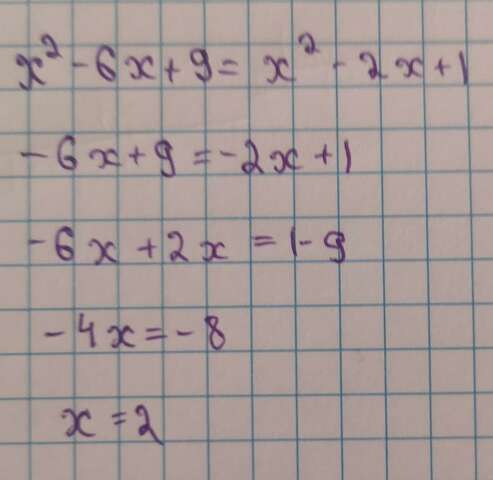 x² - 6x + 9 = x² - 2x + 1
- 6x + 9 = - 2x + 1
- 6x + 2x = 1 - 9
- 4x = - 8
x = 2